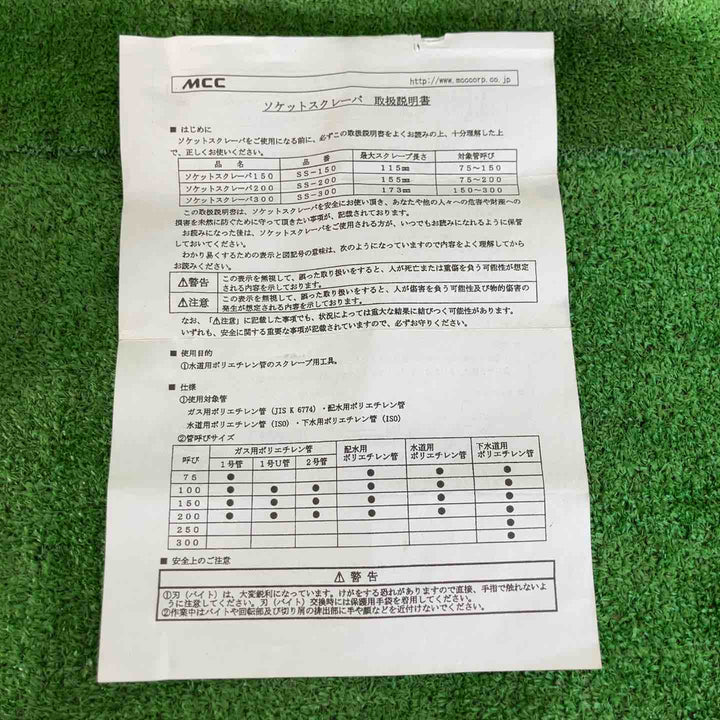 MCC
http://www.mcccorp.co.jp
ソケットスクレーパ 取扱説明書
■ はじめに
ソケットスクレーパをご使用になる前に、必ずこの取扱説明書をよくお読みの上、十分理解した上
で、正しくお使いください。
品 名 品 番 最大スクレープ長さ 対象管呼び
ソケットスクレーパ150 SS-150 115㎜ 75~150
ソケットスクレーパ200 SS-200 155㎜ 75~200
ソケットスクレーパ300 SS-300 173㎜ 150~300
この取扱説明書は、ソケットスクレーパを安全にお使い頂き、あなたや他の人々への危害や財産への
損害を未然に防ぐために守って頂きたい事項が、記載されております。
お読みになった後は、ソケットスクレーパをご使用される方が、いつでもお読みになれるように保管
しておいてください。
わかり易くするための表示と図記号の意味は、次のようになっていますので内容をよく理解してから
お読みください。
⚠警告 この表示を無視して、誤った取り扱いをすると、人が死亡または重傷を負う可能性が想定
される内容を示しております。
⚠注意 この表示を無視して、誤った取り扱いをすると、人が傷害を負う可能性及び物的傷害の
発生が想定される内容を示しております。
なお、「⚠注意」に記載した事項でも、状況によっては重大な結果に結びつく可能性があります。
いずれも、安全に関する重要な事項が記載されていますので、必ずお守りください。
■ 使用目的
①水道用ポリエチレン管のスクレープ用工具。
■ 仕様
①使用対象管
ガス用ポリエチレン管 (JIS K 6774)・配水用ポリエチレン管
水道用ポリエチレン管 (ISO)・下水用ポリエチレン管 (ISO)
②管呼びサイズ
呼び ガス用ポリエチレン管 配水用ポリエチレン管 水道用ポリエチレン管 下水道用ポリエチレン管
1号管 1号U管 2号管
75 ● ● ● ●
100 ● ● ● ● ● ●
150 ● ● ● ● ● ●
200 ● ● ● ● ● ●
250 ●
300 ●
■ 安全上のご注意
⚠ 警 告
①刃(バイト)は、大変鋭利になっています。けがをする恐れがありますので直接、手指で触れないよ
うに注意してください。刃(バイト)交換時には保護用手袋を着用してください。
②作業中はバイトや回転部及び切り屑の排出部に手や顔などを近付けないでください。